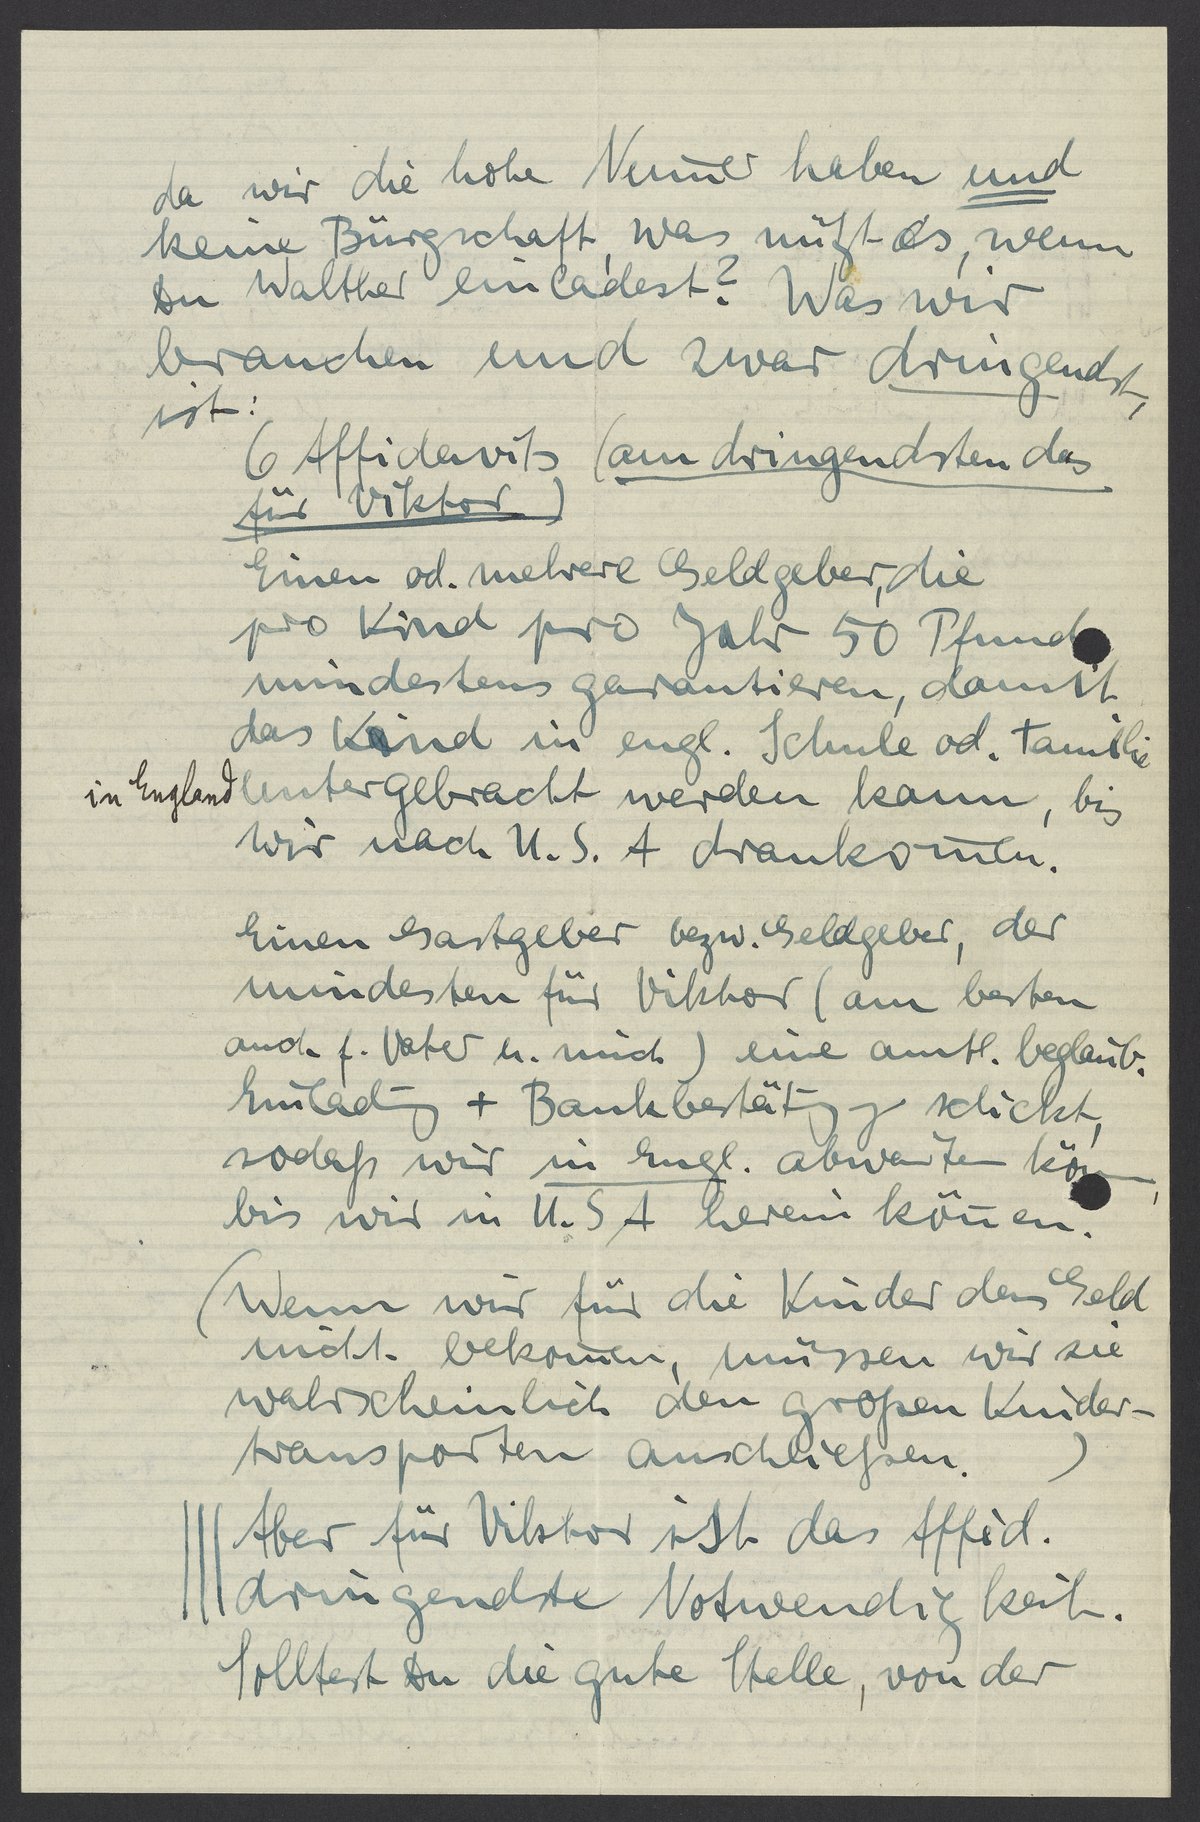 da wir die hohe Num̅er haben und
keine Bürgschaft, was nützt es, wenn
Du Walther einladest? Was wir
brauchen und zwar dringendst,
ist:
6 Affidavits (am dringendsten das
für Viktor)
Einen od. mehrere Geldgeber, die
pro Kind pro Jahr 50 Pfund
mindestens garantieren, damit
das Kind in engl. Schule od. Familie
in England untergebracht werden kann, bis
wir nach U.S.A drankom̅en.
Einen Gastgeber bezw. Geldgeber, der
mindesten für Viktor (am besten
auch f. Vater u. mich) eine amtl. beglaub.
Einladg + Bankbestätgg schickt,
sodaß wir in Engl. abwarten kön
bis wir in U.S A herein kön̅en.
(Wenn wir für die Kinder das Geld
nicht bekom̅en, müssen wir sie
wahrscheinlich den großen Kinder-
transporten anschließen. )
Aber für Viktor ist das Affid.
dringendste Notwendigkeit.
Solltest Du die gute Stelle, von der